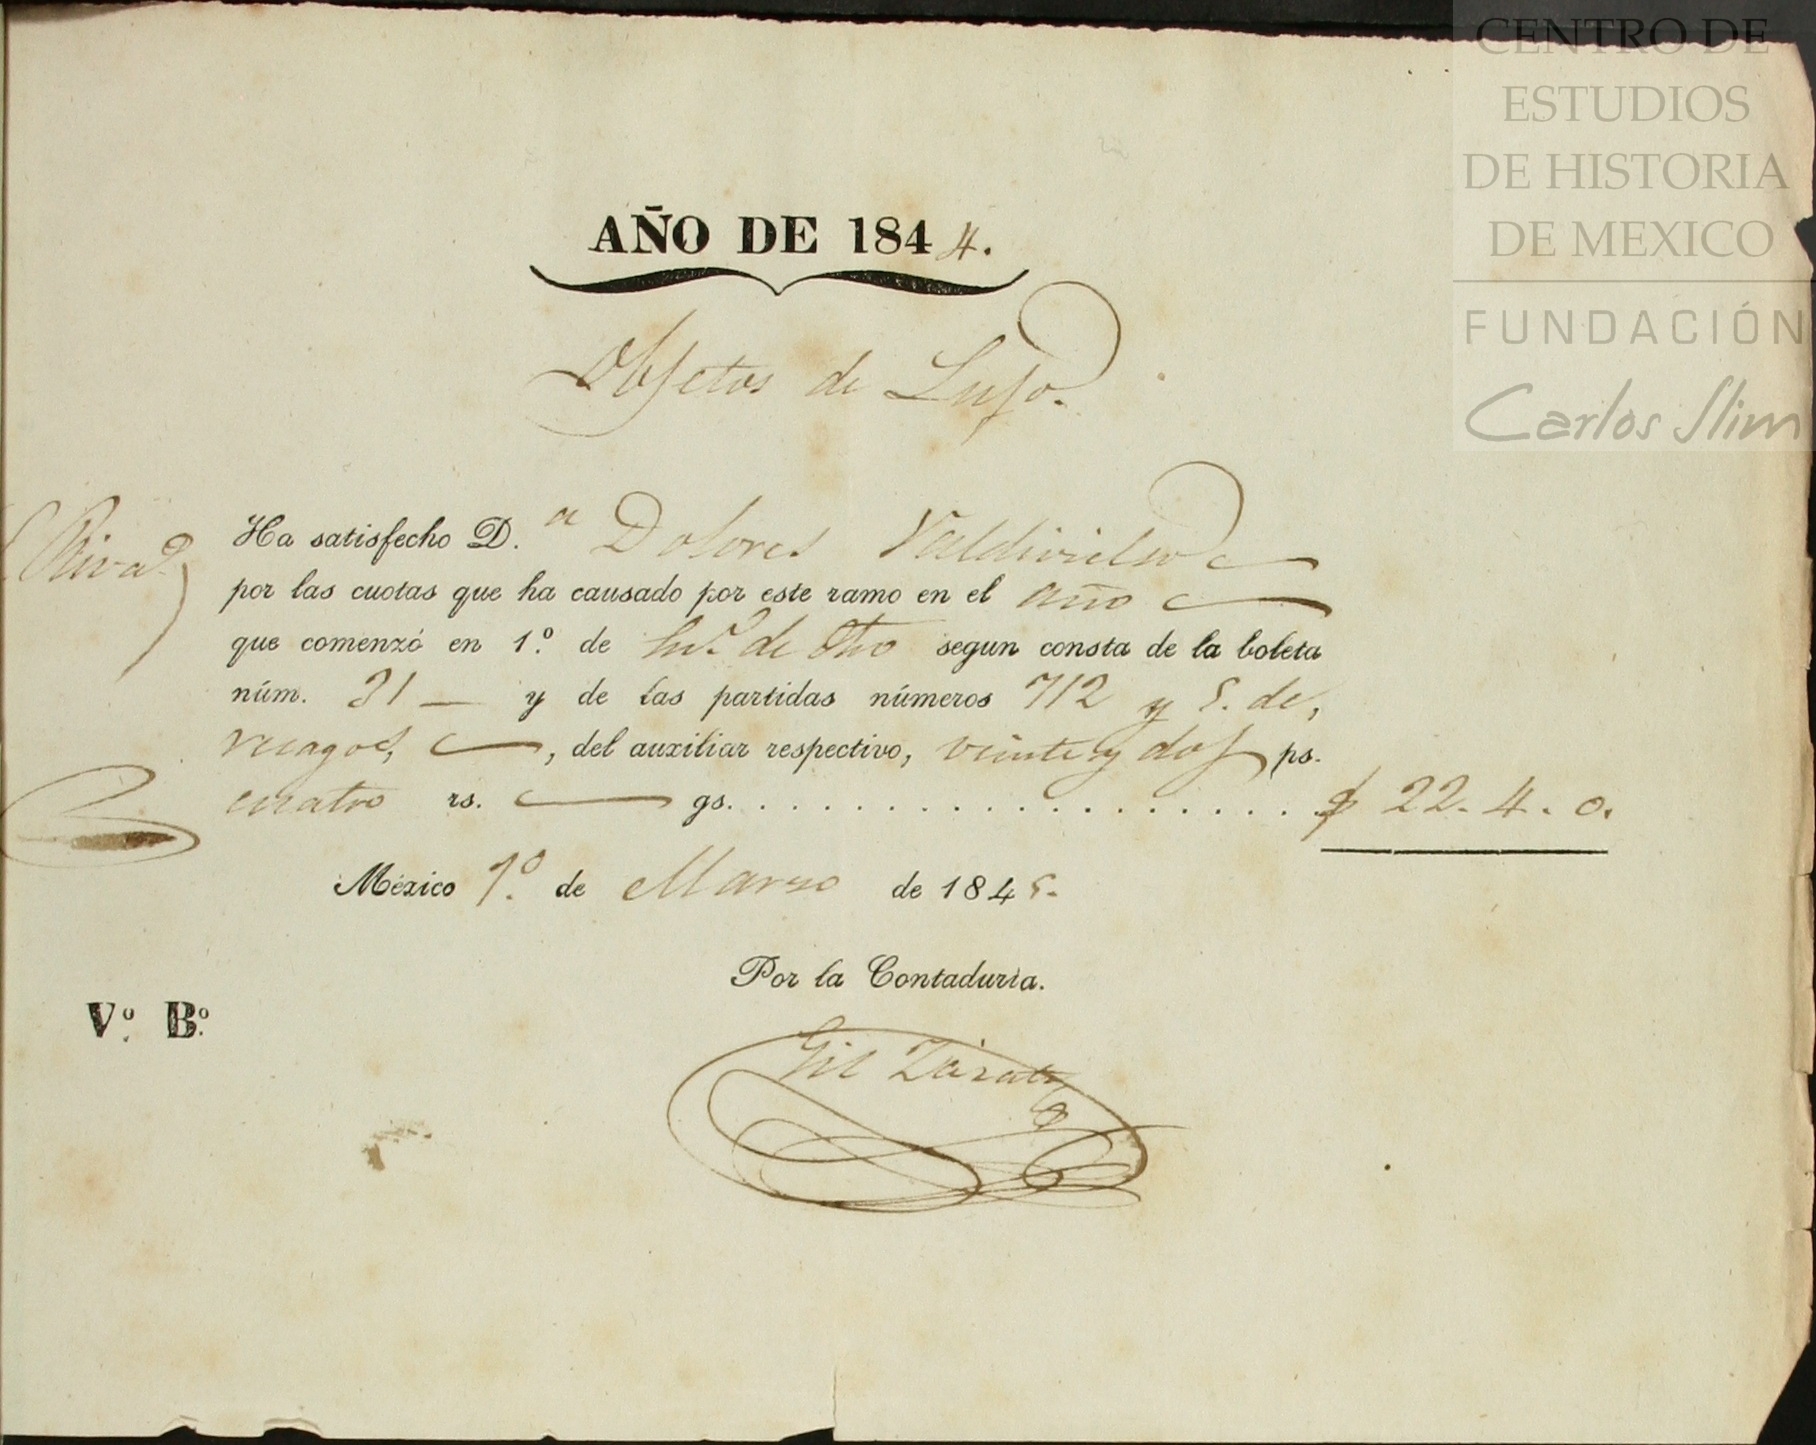 CENTRO DE
ESTUDIOS
DE HISTORIA
DE MEXICO
FUNDACIÓN
Carlos Slim
AÑO DE 1844.
Objetos de Lujo.
Ha satisfecho D.ª Dolores Valdivielso
por las cuotas que ha causado por este ramo en el año
que comenzó en 1.º de de segun consta de la boleta
núm. 31 — y de las partidas números 712 y 5. de,
rezagos, , del auxiliar respectivo, veinte y dos ps.
cuatro rs. — gs. . . . . . . . . . . . . . . . . . $ 22. 4. 0.
Rivas
México 1.º de Marzo de 1845.
Por la Contaduría.
V.º B.º
Gil Zárate